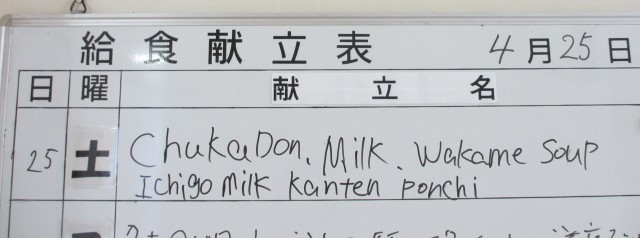 給食献立表 4月25日
日 曜 献立名
25 土 ChukaDon、Milk、Wakame Soup
Ichigo Milk Kanten Ponchi